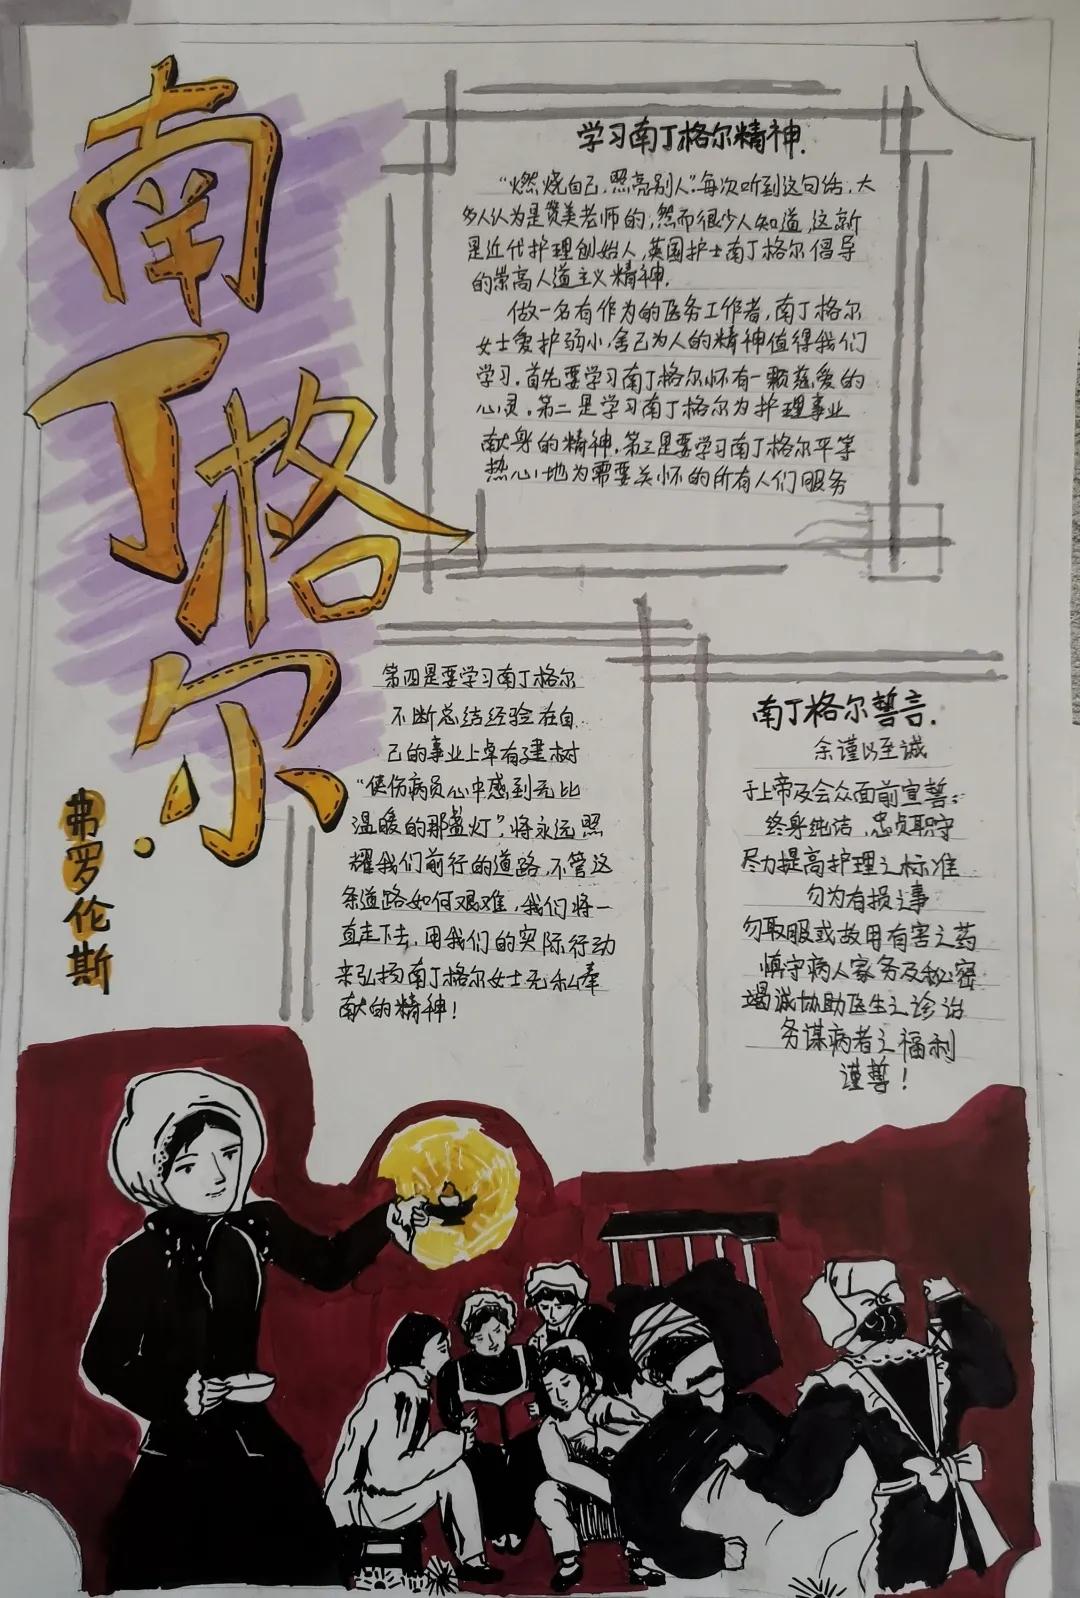 南丁格尔
弗罗伦斯
学习南丁格尔精神.
“燃烧自己,照亮别人”.每次听到这句话,大
多人认为是赞美老师的,然而很少人知道,这新
是近代护理创始人,英国护士南丁格尔倡导
的崇高人道主义精神.
做一名有作为的医务工作者,南丁格尔
女士爱护弱小,舍己为人的精神值得我们
学习.首先要学习南丁格尔怀有一颗慈爱的
心灵.第二是学习南丁格尔为护理事业
献身的精神.第三是要学习南丁格尔平等
热心地为需要关怀的所有人们服务
第四是要学习南丁格尔
不断总结经验在自
己的事业上卓有建树
“使伤病员心中感到无比
温暖的那盏灯”,将永远照
耀我们前行的道路,不管这
条道路如何艰难,我们将一
直走下去,用我们的实际行动
来弘扬南丁格尔女士无私奉
献的精神!
南丁格尔誓言.
余谨以至诚
于上帝及会众面前宣誓:
终身纯洁,忠贞职守
尽力提高护理之标准
勿为有损之事
勿取服或故用有害之药
慎守病人家务及秘密
竭诚协助医生之诊治
务谋病者之福利
谨誓!